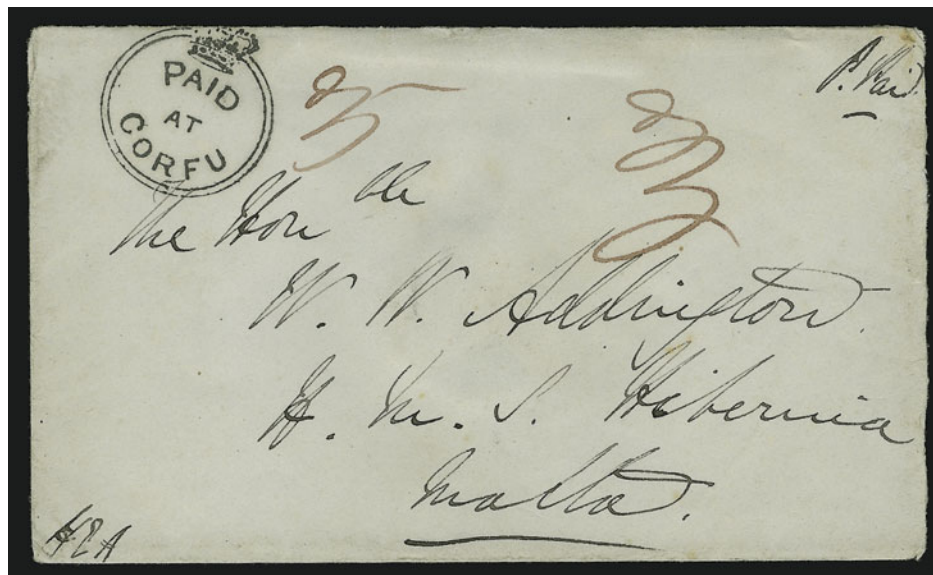 PAID
AT
CORFU
P. Paid
The Honble
W. W. Addington
H. M. S. Hibernia
Malta.
HEA